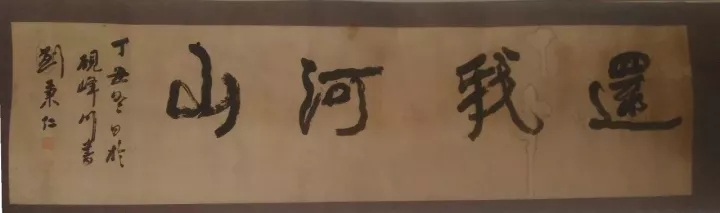 還我河山
丁丑冬日於
硯峰川書
劉秉仁